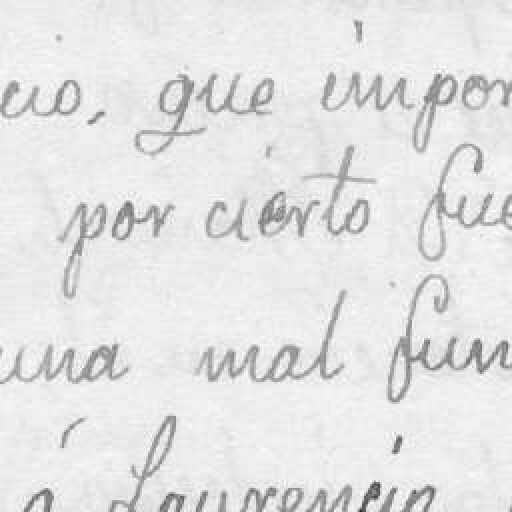 cio, que impor
por cierto fue
una mal fun
á Laurencio